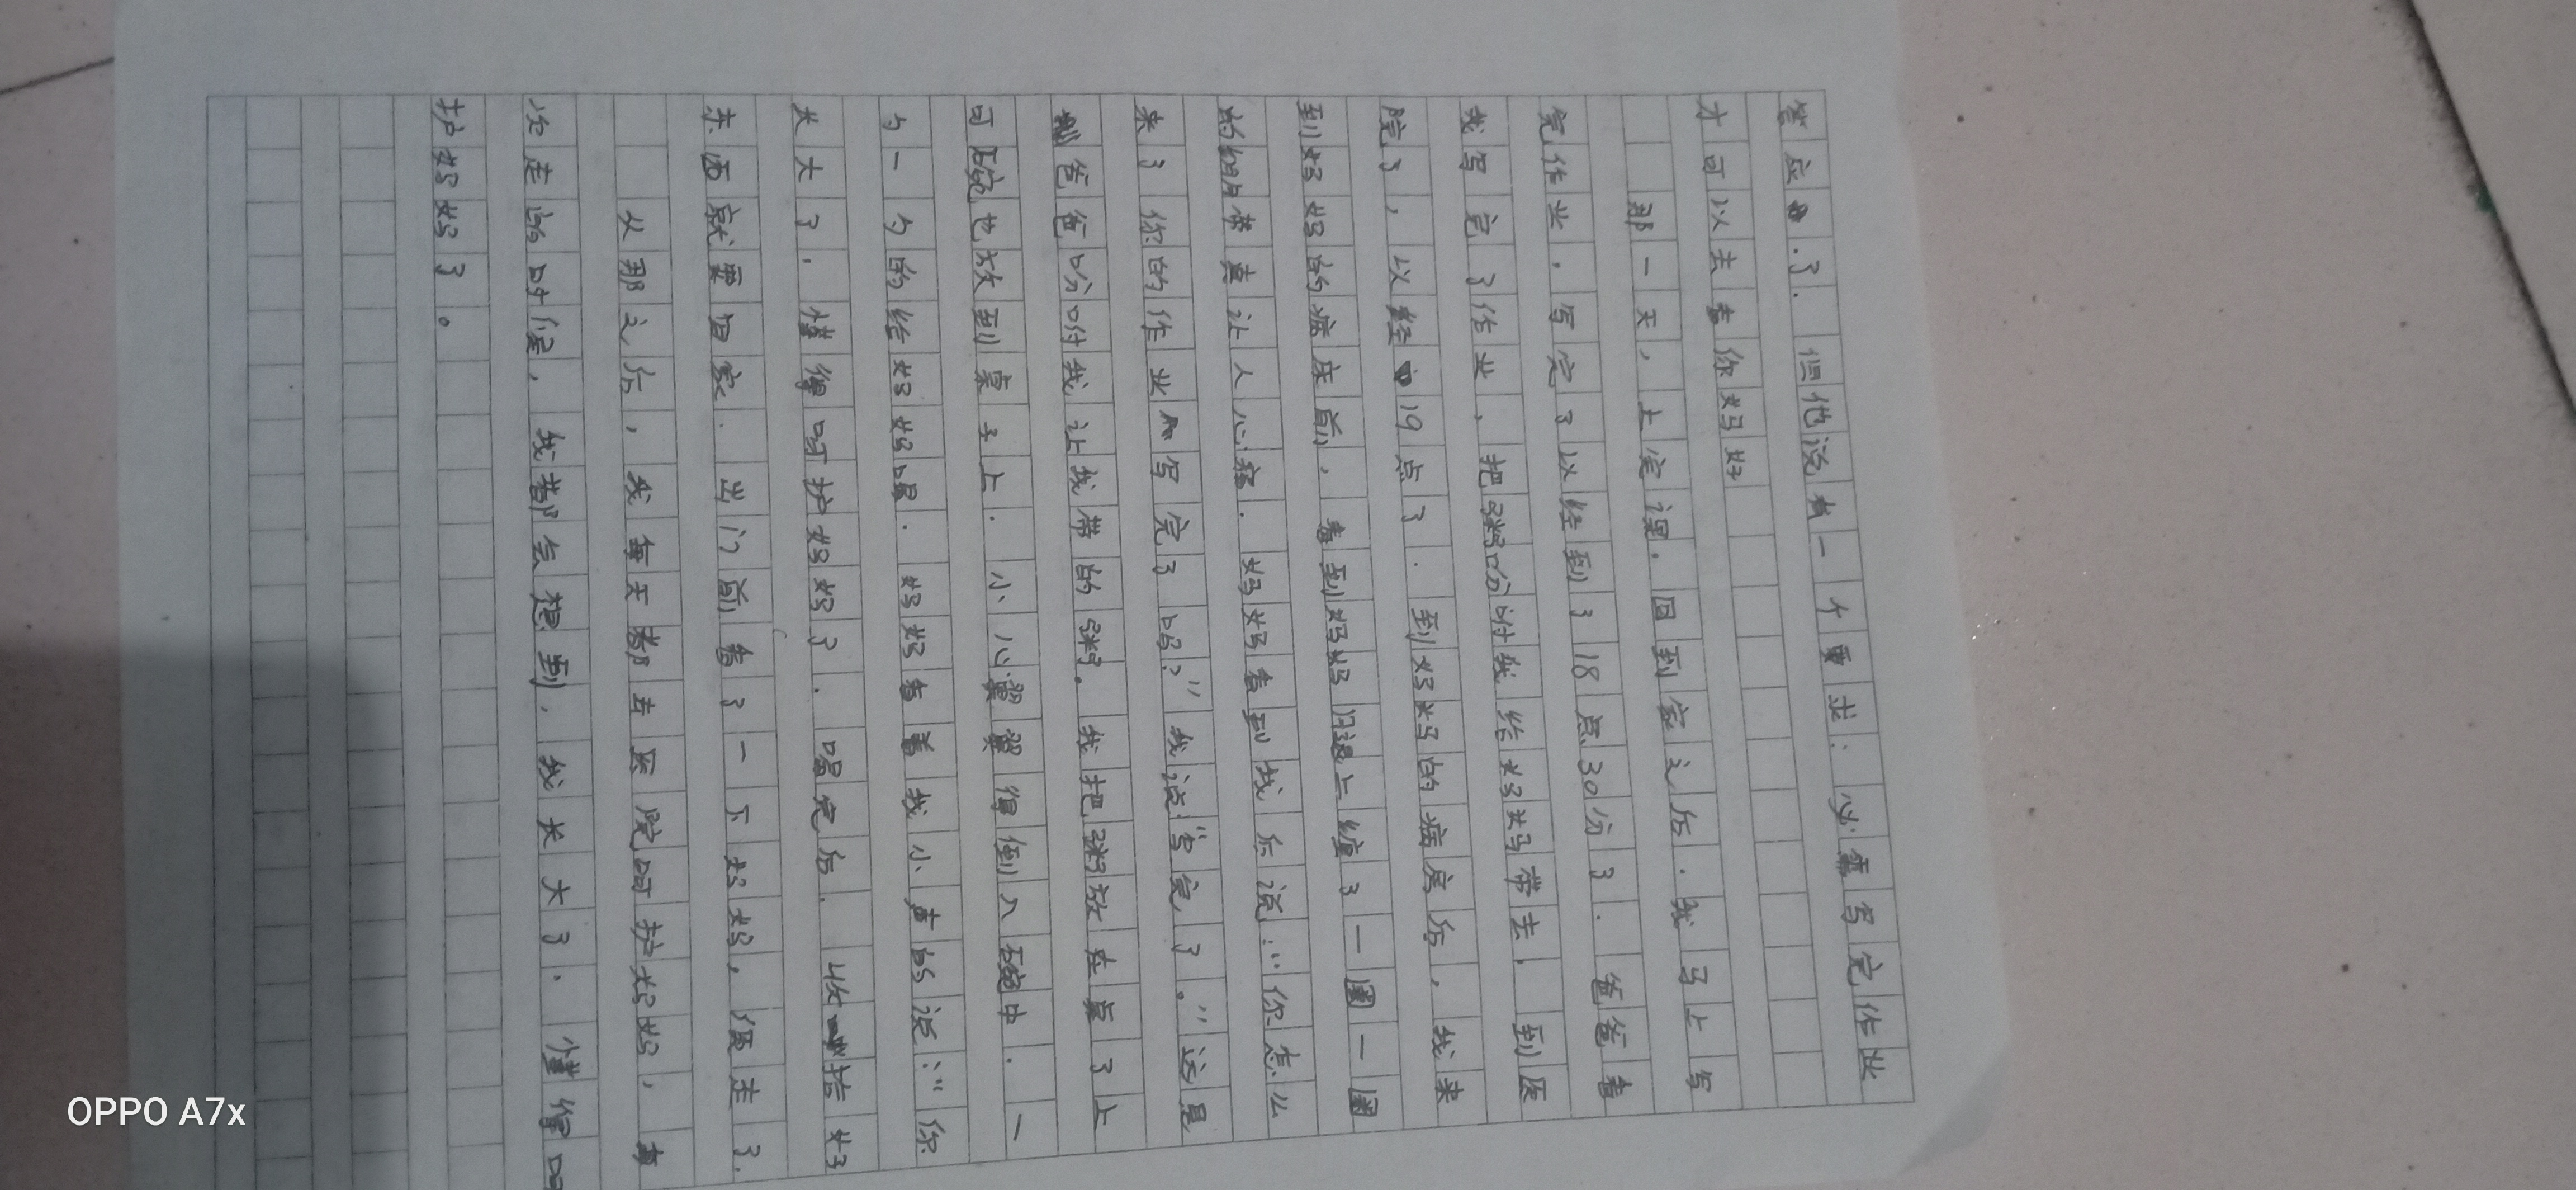 答应了.但他说有一个要求.必需写完作业
才可以去看你妈妈
那一天,上完课.回到家之后.我马上写
完作业,写完了以经到了18点30分了.爸爸看
我写完了作业,把粥吩咐我给妈妈带去,到医
院了,以经19点了.到妈妈的病房后,我来
到妈妈的病床前,看到妈妈腿上缠了一圈一圈
的绷带真让人心疼.妈妈看到我后说:“你怎么
来了你的作业写完了吗?”我说:“写完了。”这是
爸爸吩咐我让我带的粥。我把粥放在桌了上
可碗也放到桌子上.小心翼翼得倒入碗中.一
勺一勺的给妈妈喝.妈妈看着我小声的说:“你
长大了,懂得呵护妈妈了.喝完后.收拾好
东西就要回家.出门前看了一下妈妈,便走了.
从那之后,我每天都去医院呵护妈妈,每
次走的时候,我都会想到,我长大了.懂得呵
护妈妈了。
OPPO A7x